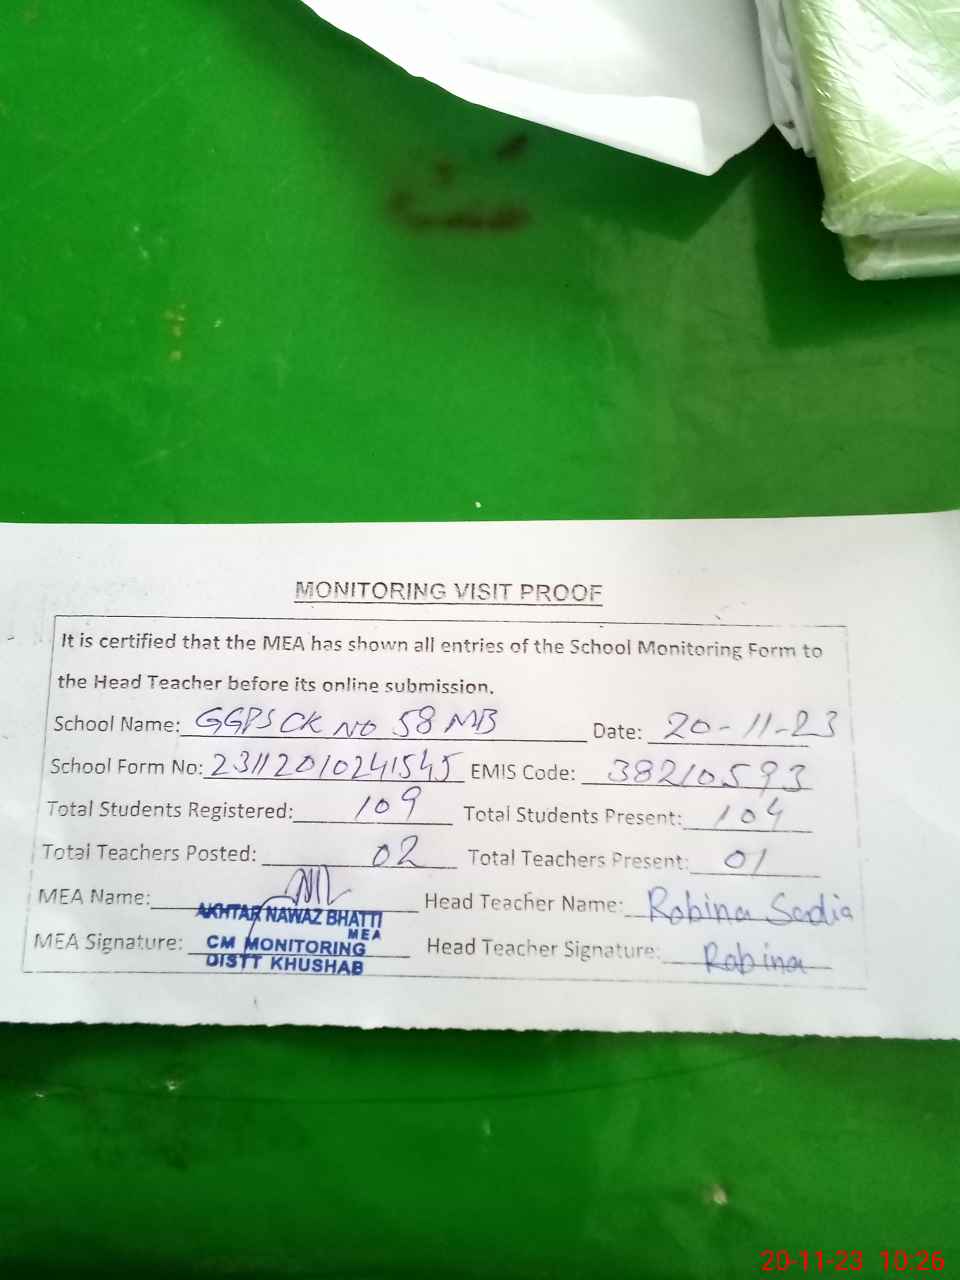 MONITORING VISIT PROOF
It is certified that the MEA has shown all entries of the School Monitoring Form to
the Head Teacher before its online submission.
School Name: GGPS CK NO 58 MB Date: 20-11-23
School Form No: 23112010241545 EMIS Code: 38210593
Total Students Registered: 109 Total Students Present: 104
Total Teachers Posted: 02 Total Teachers Present: 01
MEA Name: AKHTAR NAWAZ BHATTI Head Teacher Name: Robina Sadia
MEA
MEA Signature: CM MONITORING Head Teacher Signature: Robina
DISTT KHUSHAB
20-11-23 10:26